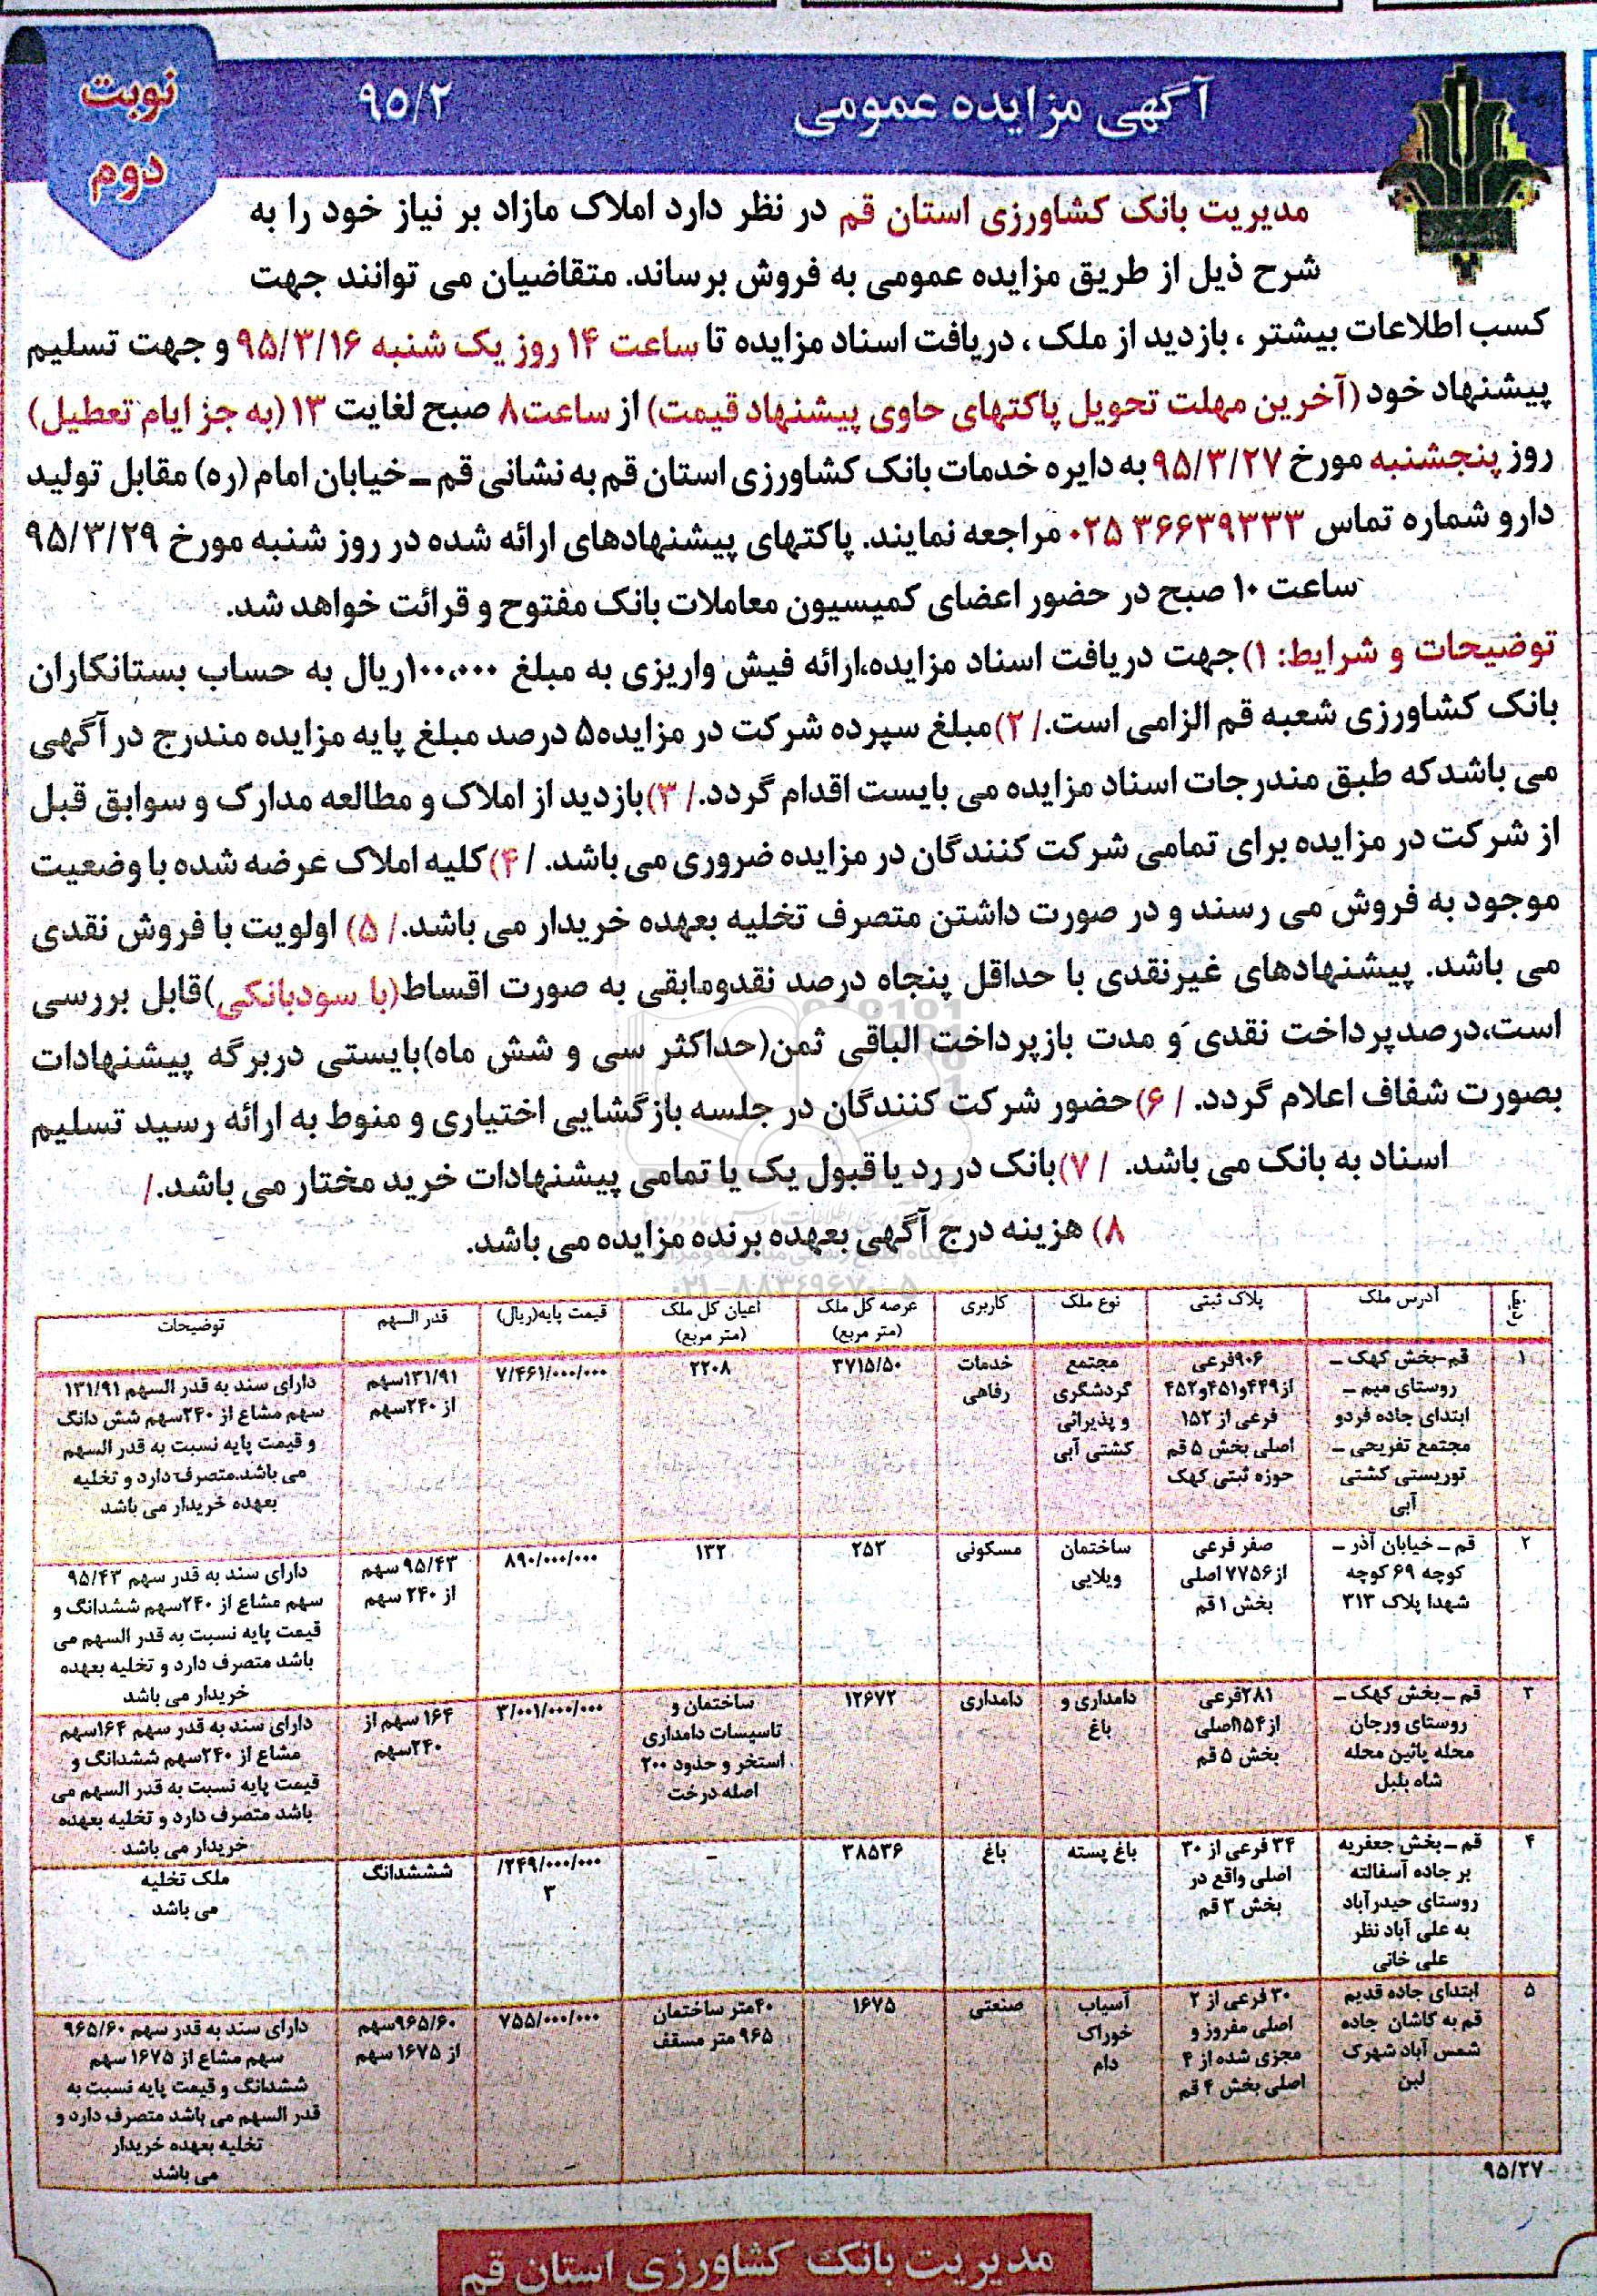 نوبت
دوم
آگهی مزایده عمومی ۹۵/۲
مدیریت بانک کشاورزی استان قم در نظر دارد املاک مازاد بر نیاز خود را به
شرح ذیل از طریق مزایده عمومی به فروش برساند. متقاضیان می توانند جهت
کسب اطلاعات بیشتر ، بازدید از ملک ، دریافت اسناد مزایده تا ساعت ۱۴ روز یک شنبه ۹۵/۳/۱۶ و جهت تسلیم
پیشنهاد خود (آخرین مهلت تحویل پاکتهای حاوی پیشنهاد قیمت) از ساعت ۸ صبح لغایت ۱۳ (به جز ایام تعطیل)
روز پنجشنبه مورخ ۹۵/۳/۲۷ به دایره خدمات بانک کشاورزی استان قم به نشانی قم ـ خیابان امام (ره) مقابل تولید
دارو شماره تماس ۳۶۶۳۹۳۳۳ ۰۲۵ مراجعه نمایند. پاکتهای پیشنهادهای ارائه شده در روز شنبه مورخ ۹۵/۳/۲۹
ساعت ۱۰ صبح در حضور اعضای کمیسیون معاملات بانک مفتوح و قرائت خواهد شد.
توضیحات و شرایط: ۱)جهت دریافت اسناد مزایده،ارائه فیش واریزی به مبلغ ۱۰۰،۰۰۰ریال به حساب بستانکاران
بانک کشاورزی شعبه قم الزامی است./ ۲)مبلغ سپرده شرکت در مزایده۵ درصد مبلغ پایه مزایده مندرج در آگهی
می باشدکه طبق مندرجات اسناد مزایده می بایست اقدام گردد./ ۳)بازدید از املاک و مطالعه مدارک و سوابق قبل
از شرکت در مزایده برای تمامی شرکت کنندگان در مزایده ضروری می باشد. / ۴)کلیه املاک عرضه شده با وضعیت
موجود به فروش می رسند و در صورت داشتن متصرف تخلیه بعهده خریدار می باشد./ ۵) اولویت با فروش نقدی
می باشد. پیشنهادهای غیرنقدی با حداقل پنجاه درصد نقدومابقی به صورت اقساط(با سودبانکی)قابل بررسی
است،درصدپرداخت نقدی و مدت بازپرداخت الباقی ثمن(حداکثر سی و شش ماه)بایستی دربرگه پیشنهادات
بصورت شفاف اعلام گردد. / ۶)حضور شرکت کنندگان در جلسه بازگشایی اختیاری و منوط به ارائه رسید تسلیم
اسناد به بانک می باشد. / ۷)بانک در رد یا قبول یک یا تمامی پیشنهادات خرید مختار می باشد./
۸) هزینه درج آگهی بعهده برنده مزایده می باشد.
۰۲۱-۸۸۳۴۹۶۷۰-۵
ردیف آدرس ملک پلاک ثبتی نوع ملک کاربری عرصه کل ملک (متر مربع) اعیان کل ملک (متر مربع) قیمت پایه(ریال) قدر السهم توضیحات
۱ قم-بخش کهک ـ روستای میم ـ ابتدای جاده فردو مجتمع تفریحی ـ توریستی کشتی آبی ۹۰۶فرعی از۴۴۹و۴۵۱و۴۵۲ فرعی از ۱۵۲ اصلی بخش ۵ قم حوزه ثبتی کهک مجتمع گردشگری و پذیرائی کشتی آبی خدمات رفاهی ۳۷۱۵/۵۰ ۲۲۰۸ ۷/۴۶۱/۰۰۰/۰۰۰ ۱۳۱/۹۱سهم از ۲۴۰سهم دارای سند به قدر السهم ۱۳۱/۹۱ سهم مشاع از ۲۴۰سهم شش دانگ و قیمت پایه نسبت به قدر السهم می باشد.متصرف دارد و تخلیه بعهده خریدار می باشد
۲ قم ـ خیابان آذر ـ کوچه ۶۹ کوچه شهدا پلاک ۳۱۳ صفر فرعی از ۷۷۵۶ اصلی بخش ۱ قم ساختمان ویلایی مسکونی ۲۵۲ ۱۳۲ ۸۹۰/۰۰۰/۰۰۰ ۹۵/۴۳ سهم از ۲۴۰ سهم دارای سند به قدر سهم ۹۵/۴۳ سهم مشاع از ۲۴۰سهم ششدانگ و قیمت پایه نسبت به قدر السهم می باشد متصرف دارد و تخلیه بعهده خریدار می باشد
۳ قم ـ بخش کهک ـ روستای ورجان محله پائین محله شاه بلبل ۲۸۱فرعی از۱۵۴اصلی بخش ۵ قم دامداری و باغ دامداری ۱۲۶۷۲ ساختمان و تاسیسات دامداری استخر و حدود ۲۰۰ اصله درخت ۳/۰۰۱/۰۰۰/۰۰۰ ۱۶۴ سهم از ۲۴۰سهم دارای سند به قدر سهم ۱۶۴سهم مشاع از ۲۴۰سهم ششدانگ و قیمت پایه نسبت به قدر السهم می باشد متصرف دارد و تخلیه بعهده خریدار می باشد
۴ قم ـ بخش جعفریه بر جاده آسفالته روستای حیدرآباد به علی آباد نظر علی خانی ۳۴ فرعی از ۳۰ اصلی واقع در بخش ۳ قم باغ پسته باغ ۳۸۵۳۶ - ۲۴۹/۰۰۰/۰۰۰/ ۳ شششدانگ ملک تخلیه می باشد
۵ ابتدای جاده قدیم قم به کاشان جاده شمس آباد شهرک لبن ۳۰ فرعی از ۲ اصلی مفروز و مجزی شده از ۴ اصلی بخش ۴ قم آسیاب خوراک دام صنعتی ۱۶۷۵ ۴۰متر ساختمان ۹۶۵ متر مسقف ۷۵۵/۰۰۰/۰۰۰ ۹۶۵/۶۰سهم از ۱۶۷۵ سهم دارای سند به قدر سهم ۹۶۵/۶۰ سهم مشاع از ۱۶۷۵ سهم ششدانگ و قیمت پایه نسبت به قدر السهم می باشد متصرف دارد و تخلیه بعهده خریدار می باشد
۹۵/۲۷
مدیریت بانک کشاورزی استان قم